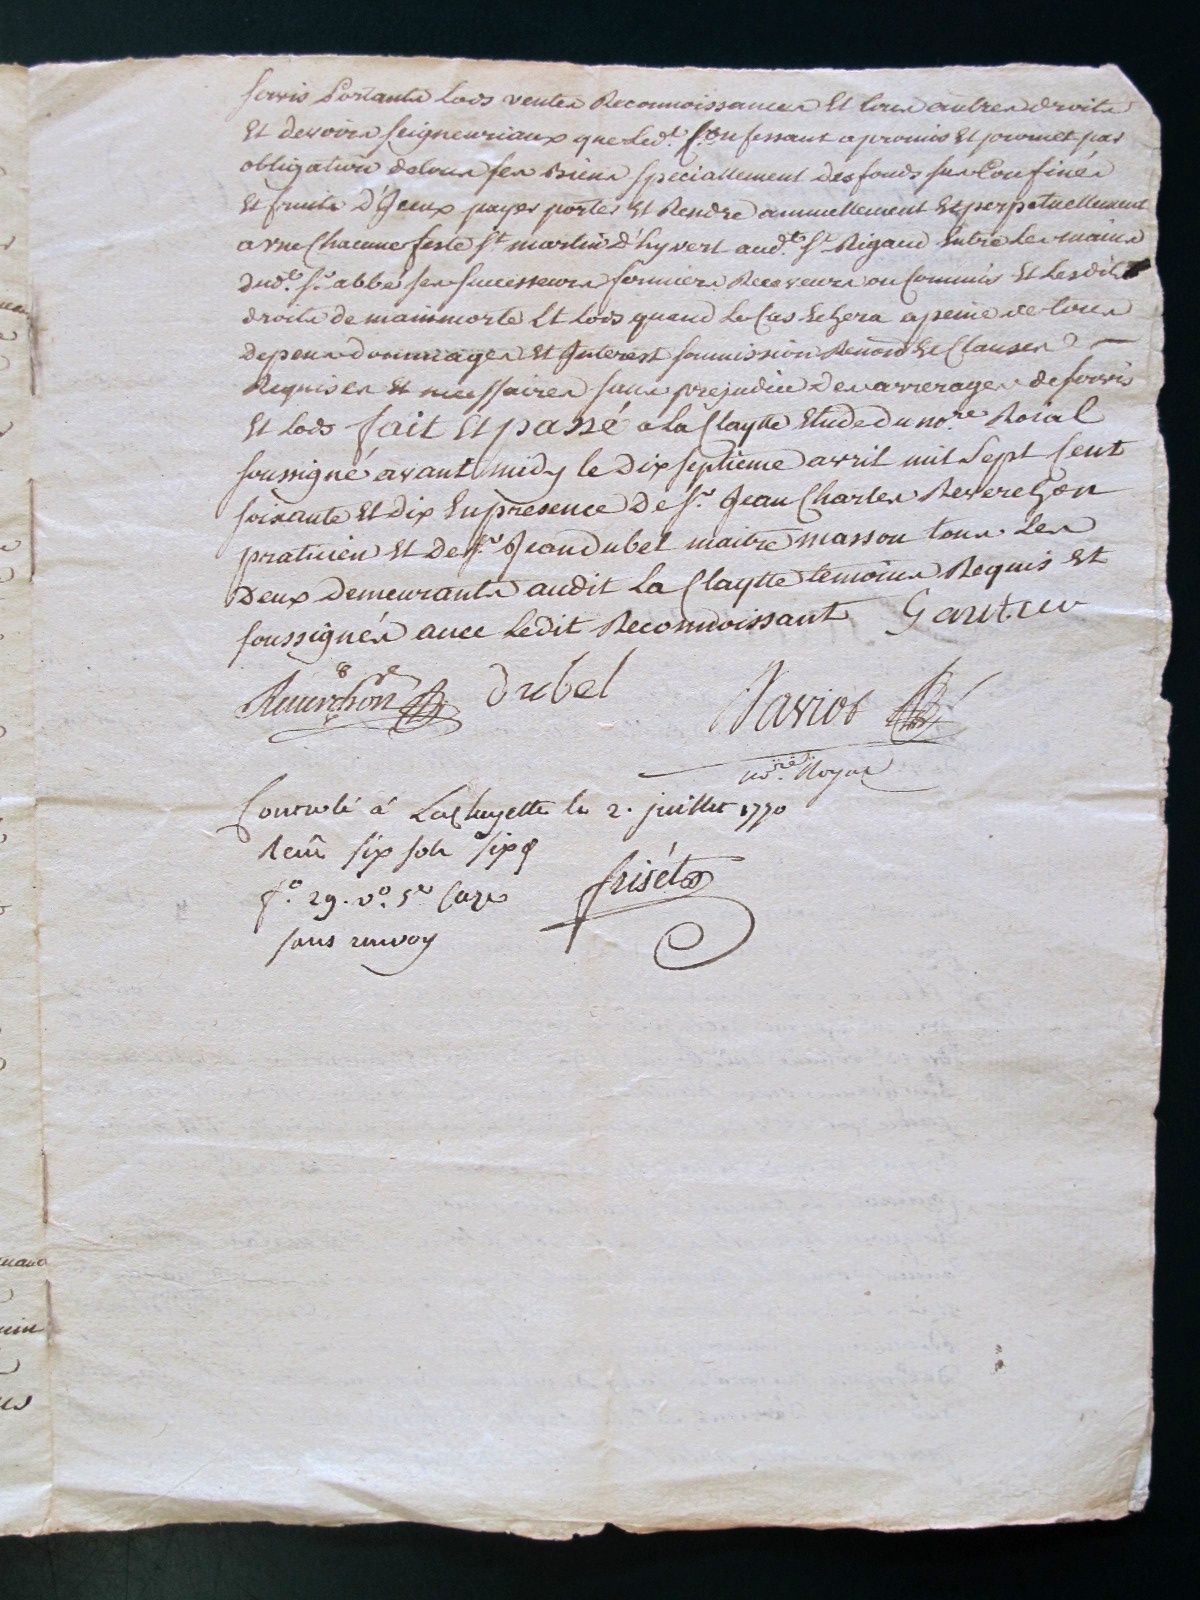 servis Portants Lods ventes Reconnoissances Et tous autres droits
Et devoirs seigneuriaux que Led.t Confessant a promis Et promet par
obligation de tous ses Biens speciallement des fonds sus Confinés
Et fruits d'Jceux payer porter Et Rendre annuellement Et perpetuellement
a vne Chacune feste st martin d'hyvert aud.t St Rigaud Entre Les mains
dud.t sr. abbé ses successeurs fermiers Receveurs ou Commis Et Lesdits
droits de mainmorte Et Lods quand Le Cas Echera a peine de tous
depens dommages Et Jnterest soumission Renon Et Clauses
Requises Et necessaires sans prejudice des arrerages de servis
Et Lods fait Et passé a La Claytte Etude du no.re Roïal
soussigné avant midy le dix septieme avril mil sept Cent
soixante Et dix En presence De sr. Jean Charles Reverchon
praticien Et De sr. Jean dubel maitre masson tous Les
deux demeurants audit La Claytte temoins Requis Et
soussignés avec Ledit Reconnoissant Gautier
Reverchon dubel Naviot
no.re Royal
Controlé á LaClayette le 2. juillet 1770
Recû six sols six d
f.o 29. v.o 5.e Case
sans renvoy
frisét